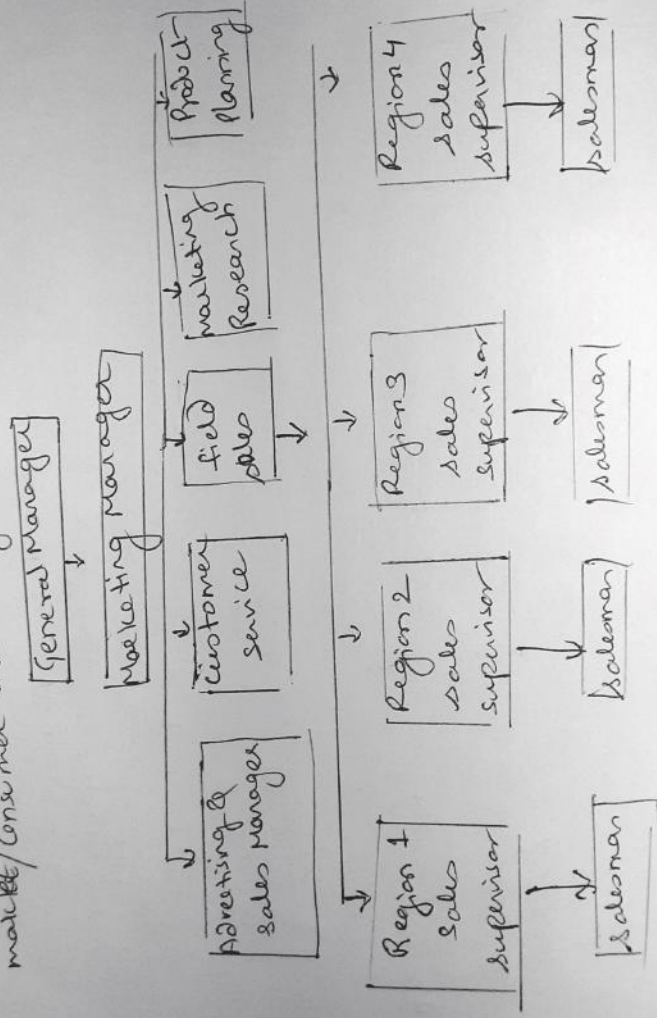 market/consumer
General Manager
Marketing Manager
Advertising &
Sales Manager
Customer
service
field
sales
Marketing
Research
Product
Planning
Region 1
Sales
supervisor
Region 2
sales
supervisor
Region 3
sales
supervisor
Region 4
sales
supervisor
salesman
salesman
salesman
salesman